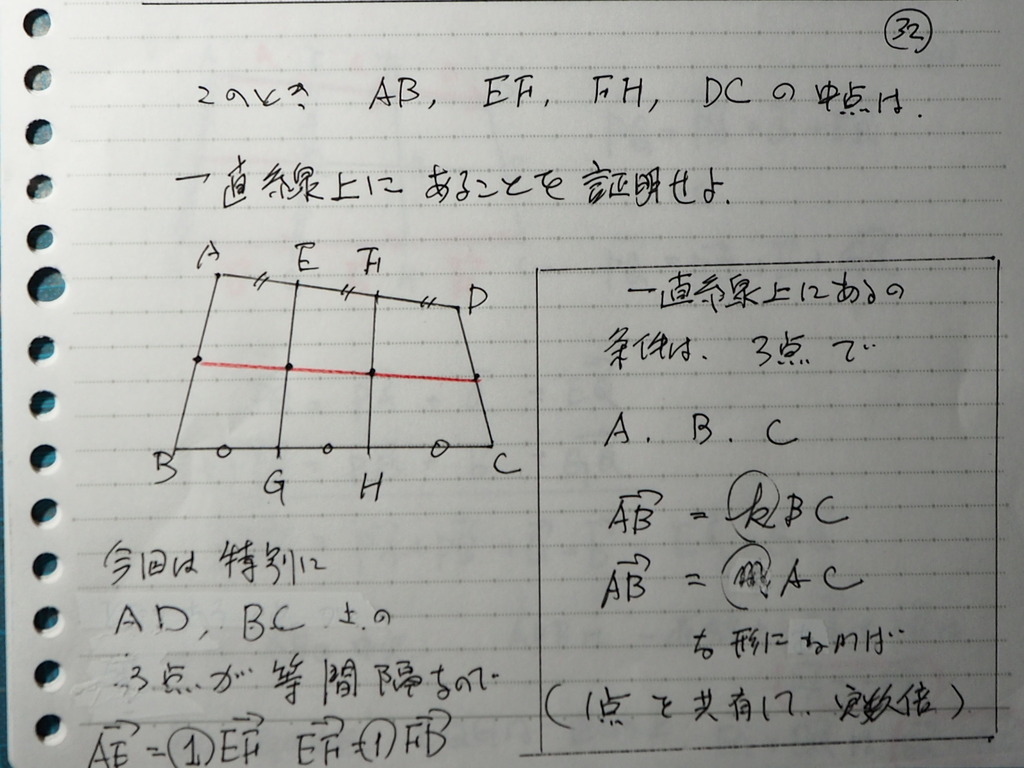 32
このとき AB, EF, FH, DC の 中点は.
一直線上に あることを 証明せよ.
A E F D
B G H C
今回は 特別に
AD, BC 上の
3点が 等間隔なので
AE = ① EF EF = ① FB
一直線上にあるの
条件は. 3点で
A. B. C
AB = k BC
AB = m AC
な形になれば
(1点を共有して. 定数倍)